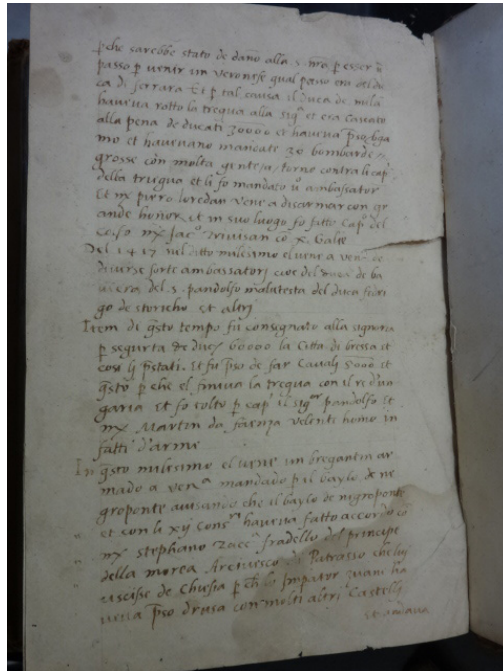 pche sarebbe stato de daño alla S. nra p esser ũ
passo p venir in veronese qual passo era del du
ca di ferrara Et p tal causa il Duca de mila
haveva rotto la tregua alla Sigᵃ et era cascato
alla pena de ducati 30000 et haveva pso bga
mo et havevano mandate 30 bombarde
grosse con molta gente a torno contra li cap
della treugua et li fo mandato ũ ambassator
Et mʳ piero loredan vene a disarmar con gr
ande honor, et in suo luogo fo fatto Capᵒ del
mʳ Jacᵒ trivisan cõ X. Galie
Del 1417 nel ditto milesimo el vene a venᵃ de
diverse sorte ambassatorj cioe del duca de ba
viera del S. pandolfo malatesta del duca fedri
go de storicho et altri
Item de qsto tempo fu consegnato alla signoria
p segurta de ducᵗⁱ 60000 la Citta di bressa et
cosi li pstati. Et fu pso de far Cavalj 5000 et
qsto p che el finiva la tregua con il re d'un
garia Et fo tolto p capᵒ il sigᵒʳ pandolfo Et
mʳ Martin da faenza valenti homo in
fatti d'arme
In qsto milesimo el vene un bregantin ar
mado a venᵃ mandado p il baylo de ne
groponte avisando che il baylo de nigroponte
et con li xij Consʳⁱ haveva fatto accordo cõ
mʳ stephano Zaccᵃ fradello del principe
della morea Arcivesco di Patrasso che lui
uscisse de p che lo Imperator Zuani ha
veva pso drusa con molti altri Castelli
et andava